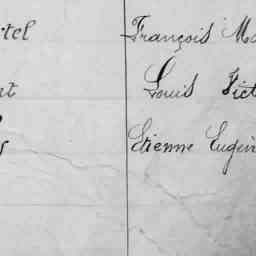 rtel François Ma
nt Louis Vict
Etienne Eugèn